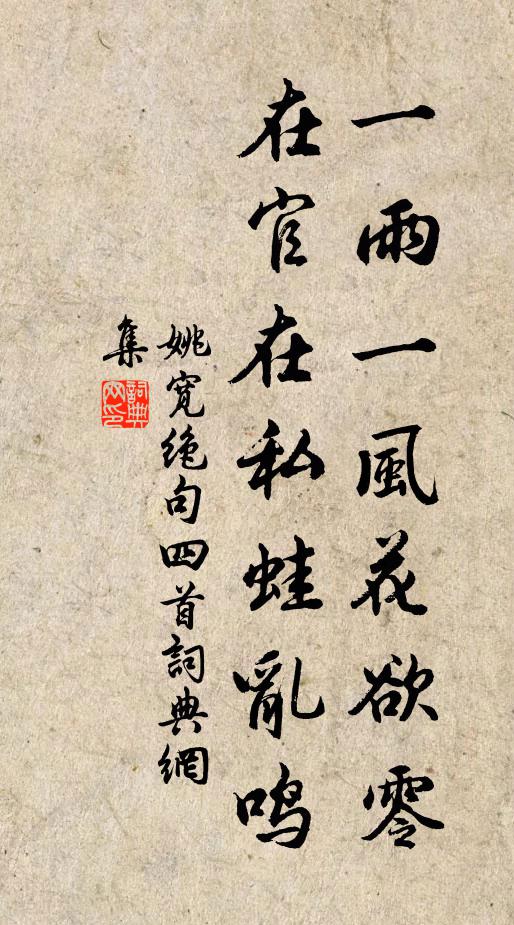 一雨一風花欲零
在官在私蛙亂鳴
姚寬絶句四首詞典網
集
詞典網印